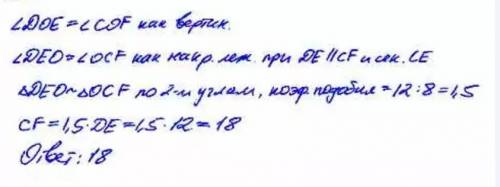 ∠DOE = ∠COF как вертик.
∠DEO = ∠OCF как накр. леж. при DE ∥ CF и сек. CE
△DEO ~ △OCF по 2-м углам, коэф подобия = 12 : 8 = 1,5
CF = 1,5 · DE = 1,5 · 12 = 18
Ответ: 18